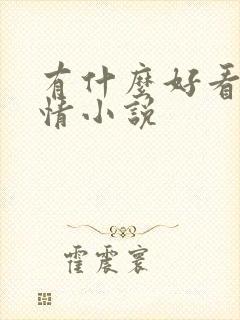 有什麼好看
情小說
霍震寰